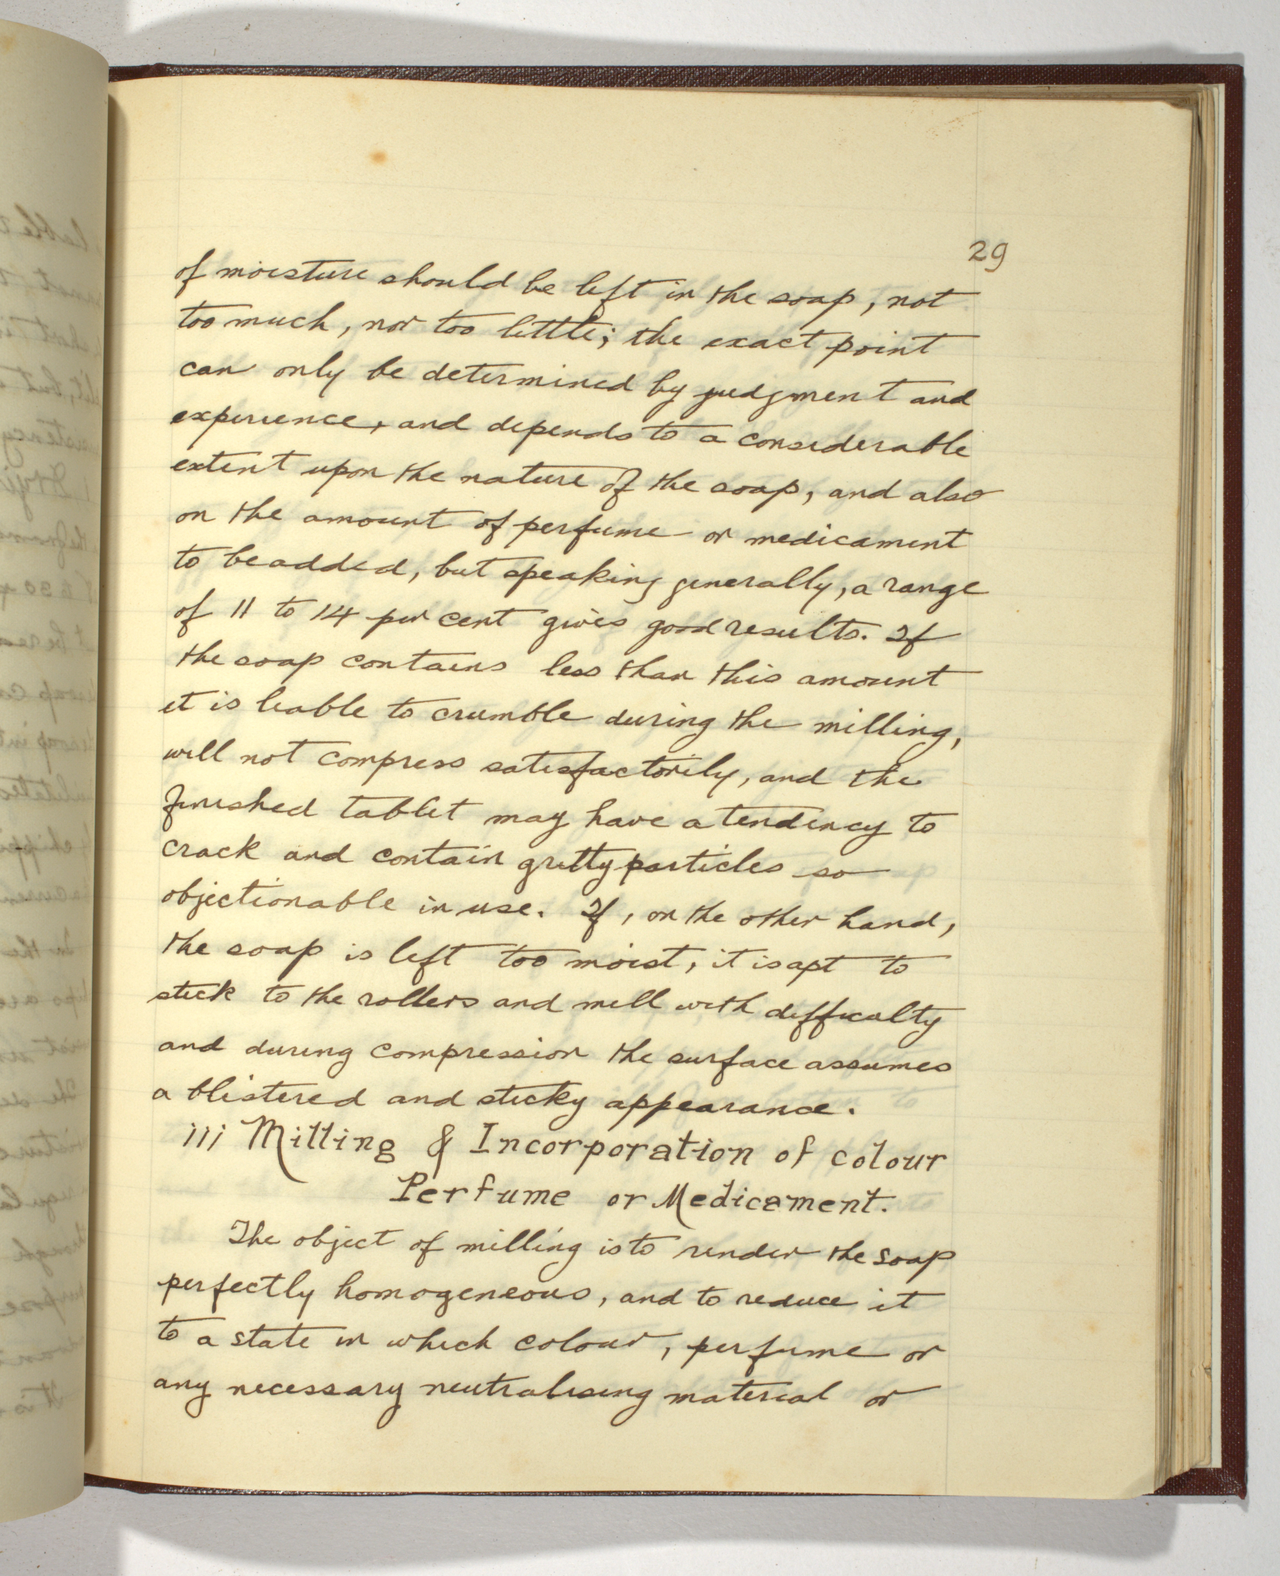 29
of moisture should be left in the soap, not
too much, nor too little; the exact point
can only be determined by judgment and
experience, and depends to a considerable
extent upon the nature of the soap, and also
on the amount of perfume or medicament
to be added, but speaking generally, a range
of 11 to 14 per cent gives good results. If
the soap contains less than this amount
it is liable to crumble during the milling,
will not compress satisfactorily, and the
finished tablet may have a tendency to
crack and contain gritty particles so
objectionable in use. If, on the other hand,
the soap is left too moist, it is apt to
stick to the rollers and mill with difficulty
and during compression the surface assumes
a blistered and sticky appearance.
iii Milling & Incorporation of colour
Perfume or Medicament.
The object of milling is to render the soap
perfectly homogeneous, and to reduce it
to a state in which colour, perfume or
any necessary neutralising material or